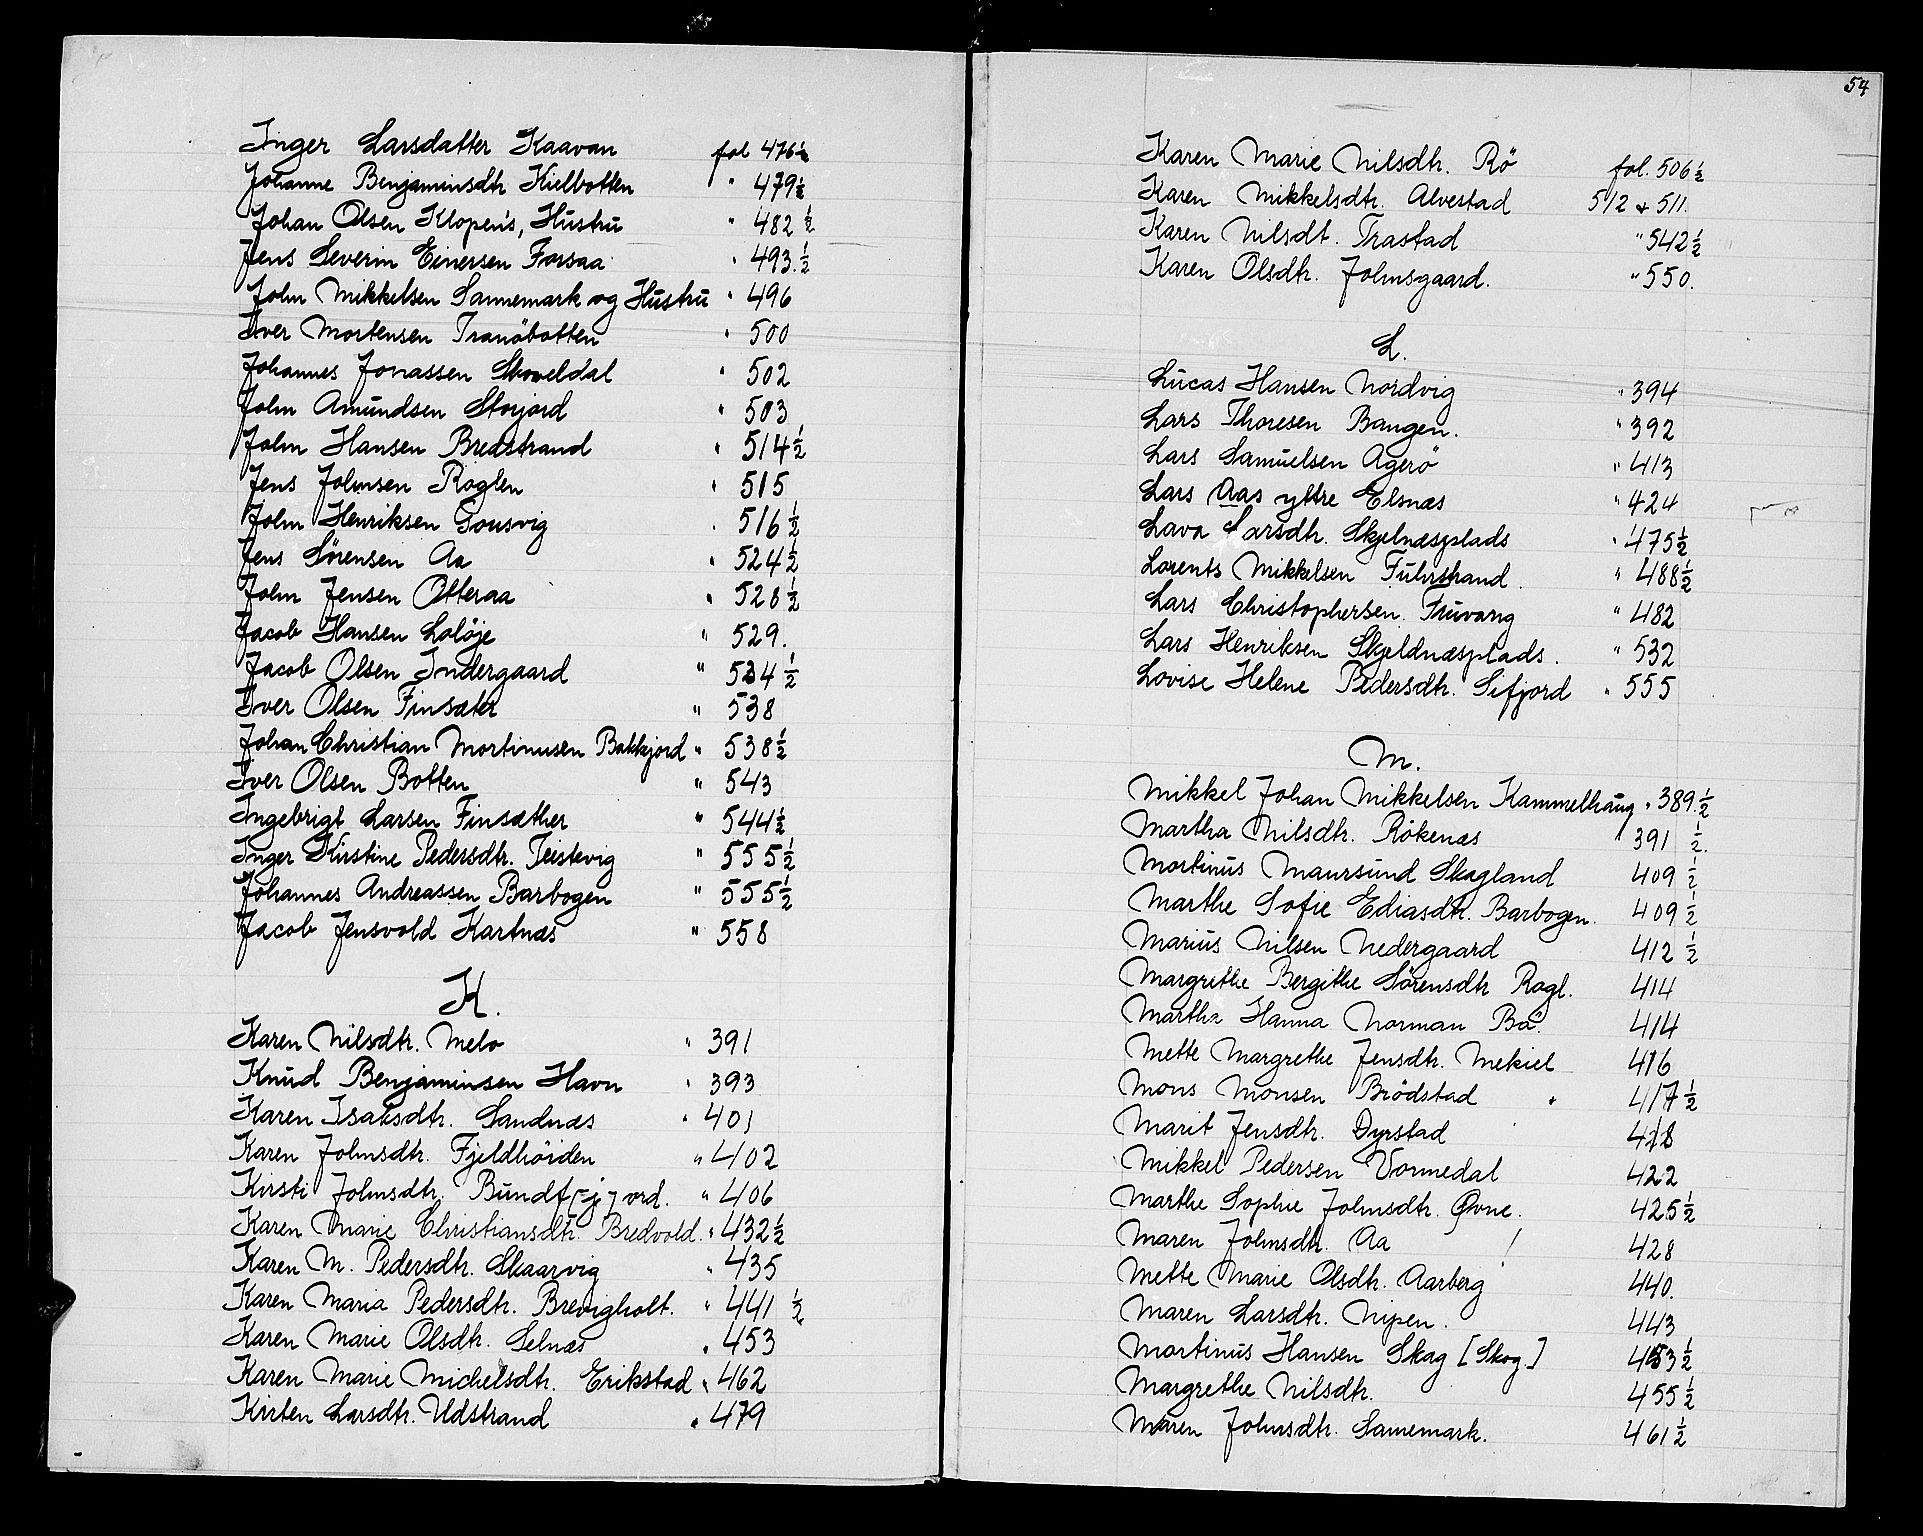 Inger Larsdatter Kaavan fol 476½
Johanne Benjaminsdtr Kielbotten " 479½
Johan Olsen Klopen's, Hustru " 482½
Jens Severin Einersen Forsaa " 493.½
John Mikkelsen Sannemark og Hustru " 496
Iver Mortensen Tranöbotten " 500
Johannes Jonassen Skoveldal " 502
John Amundsen Storjord " 503
John Hansen Bredstrand " 514½
Jens Johnsen Roglen " 515
John Henriksen Gousvig " 516½
Jens Sörensen Aa " 524½
John Jensen Otteraa " 528½
Jacob Hansen Lolöje " 529.
Jacob Olsen Indergaard " 534½
Iver Olsen Finsæter " 538
Johan Christian Mortinusen Bakkjord " 538½
Iver Olsen Botten " 543
Ingebrigt Larsen Finsæther " 544½
Inger Kirstine Pedersdtr. Teistevig " 555½
Johannes Andreassen Barbogen " 555½
Jacob Jensvold Kartnæs " 558
K.
Karen Nilsdtr. Melo " 391
Knud Benjaminsen Havn " 393
Karen Isaksdtr. Sandnæs " 401
Karen Johnsdtr. Fjeldhöiden " 402
Kirsti Johnsdtr. Bundf[j]ord. " 406
Karen Marie Christiansdtr. Bredvold. " 432½
Karen M. Pedersdtr. Skaarvig " 435
Karen Maria Pedersdtr. Brevigholt. " 441½
Karen Marie Olsdtr. Selnæs " 453
Karen Marie Michelsdtr. Erikstad " 462
Kirten Larsdtr. Udstrand " 479
54
Karen Marie Nilsdtr. Rö fol. 506½
Karen Mikkelsdtr. Alvestad 512 & 511.
Karen Nilsdt. Trastad " 542½
Karen Olsdtr. Johnsgaard. " 550.
L.
Lucas Hansen Nordvig " 394
Lars Thoresen Bangen. " 392
Lars Samuelsen Agerö " 413
Lars Aas yttre Elsnæs " 424
Lava Larsdtr. Skjelnæsplads " 475½
Lorents Mikkelsen Fuhrstrand. " 488½
Lars Christophersen Truvang " 482
Lars Henriksen Skjeldnæsplads. " 532
Lovise Helene Pedersdtr. Sifjord " 555
M.
Mikkel Johan Mikkelsen Kammelhaug " 389.½
Martha Nilsdtr. Rökenæs " 391½.
Mortinus Maursund Skogland 409½
Marthe Sofie Ediasdtr. Barbogen. 409½
Marius Nilsen Nedergaard 412½
Margrethe Bergithe Sörensdtr Rogl. 414
Martha Hanna Norman Bö. 414
Mette Margrethe Jensdtr. Mekiel 416
Mons Monsen Brödstad " 417½
Marit Jensdtr. Dyrstad 418
Mikkel Pedersen Vormedal 422
Marthe Sophie Johnsdtr. Øvne. 425½
Maren Johnsdtr. Aa 428
Mette Marie Olsdtr. Aarberg 440.
Maren Larsdtr. Nipen. 443
Mortinus Hansen Skag [Skog] 453½
Margrethe Nilsdtr. 455½
Maren Johnsdtr. Samemark. 461½